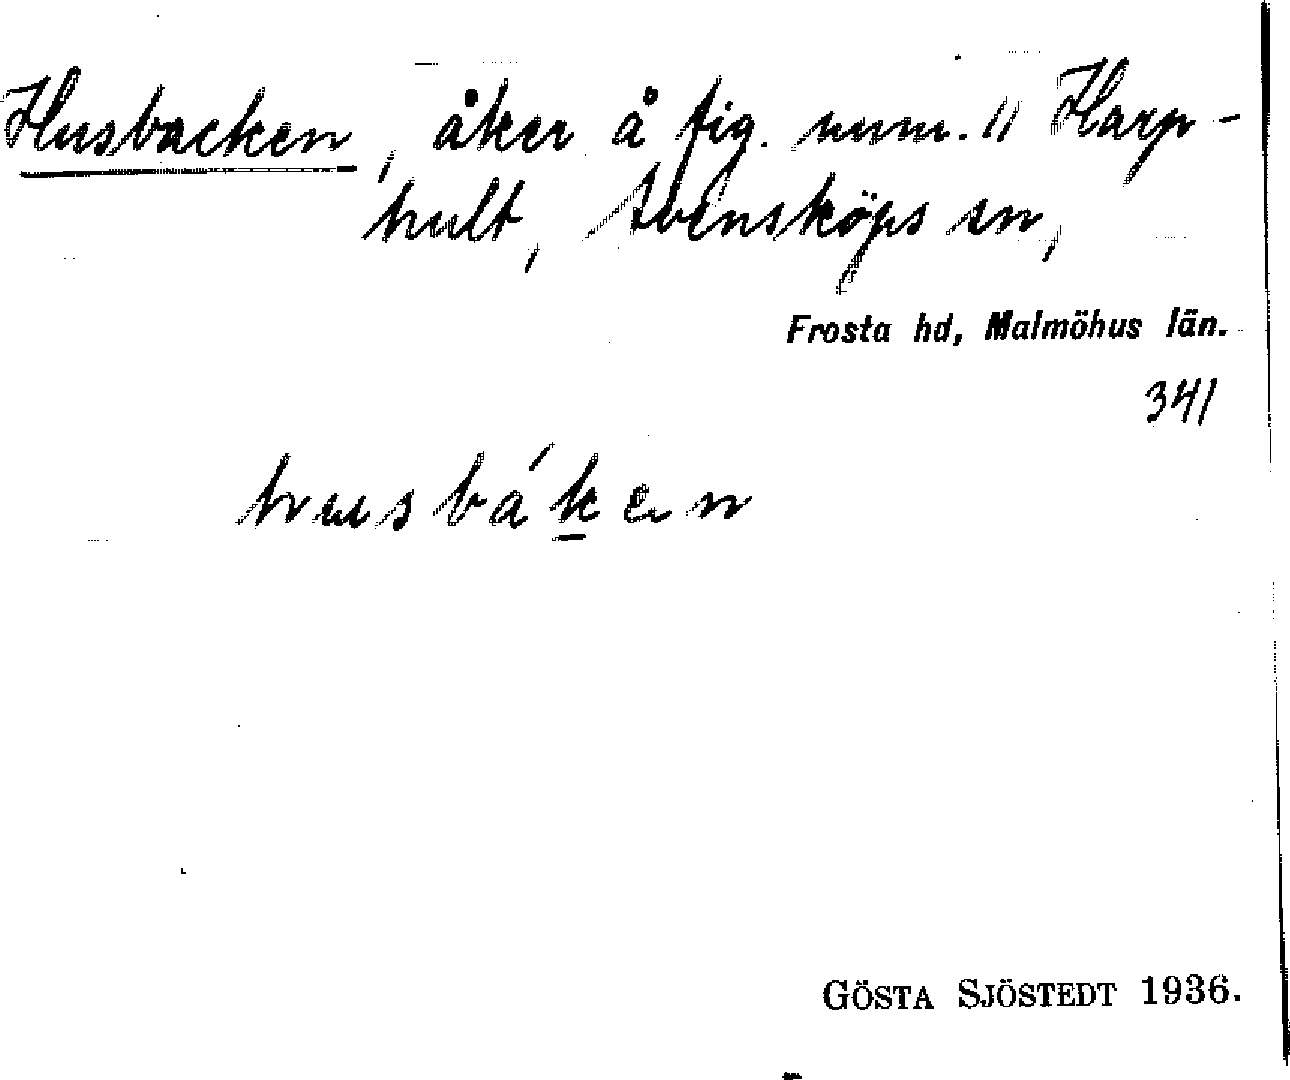 Husbacken, åker å fig. num. 11 Harp-
hult, Svensköps sn,
Frosta hd, Malmöhus län.
341
husbáken
GÖSTA SJÖSTEDT 1936.